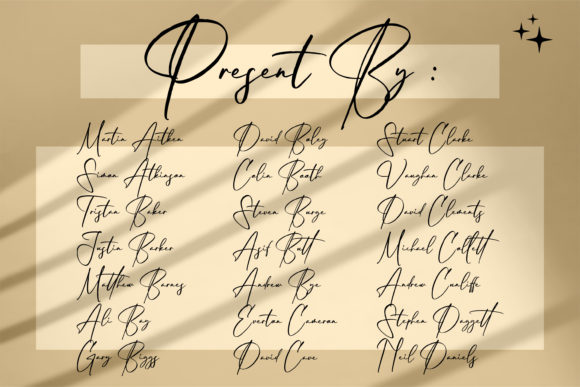 Present By :
Martin Aitken David Boley Stuart Clarke
Simon Atkinson Colin Booth Vaughan Clarke
Tristan Baker Steven Burge David Clements
Justin Barker Asif Butt Michael Collett
Matthew Barnes Andrew Bye Andrew Cunliffe
Ali Bay Everton Cameron Stephen Daggett
Gary Biggs David Cave Neil Daniels